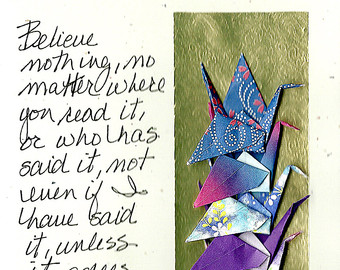 Believe
nothing, no
matter where
you read it,
or who has
said it, not
even if I
have said
it, unless
it agrees